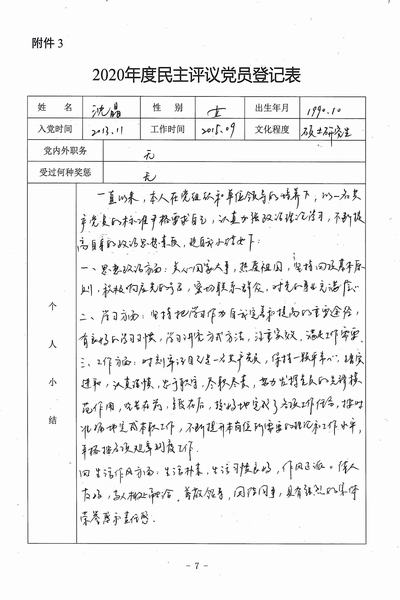 附件 3
2020年度民主评议党员登记表
姓 名 沈晶 性 别 女 出生年月 1990.10
入党时间 2013.11 工作时间 2015.09 文化程度 硕士研究生
党内外职务 无
受过何种奖惩 无
个人小结
一直以来，本人在党组织和单位领导的培养下，以一名共
产党员的标准严格要求自己，认真加强政治理论学习，不断提
高自身的政治思想素质，现自我小结如下：
一、思想政治方面：关心国家大事，热爱祖国，坚持四项基本原
则，积极响应党的号召，密切联系群众，对党的事业充满信心
二、学习方面：坚持把学习作为自我完善和提高的重要途径，
有良好的学习习惯，学习讲究方式方法，注重实效，满足工作需要
三、工作方面：时刻牢记自己是一名共产党员，保持一颗平常心，踏实
进取，认真谨慎，忠于职守，尽职尽责，努力发挥党员的先锋模
范作用，吃苦在前，享受在后，较好地完成了各项工作任务，按时
准确地完成本职工作，不断提升本岗位所需要的理论和工作水平，
严格按各项规章制度工作。
四、生活作风方面：生活朴素，生活习惯良好，作风正派。待人
友好，与人相处融洽，尊敬领导，团结同事，具有强烈的集体
荣誉感和责任感。
- 7 -